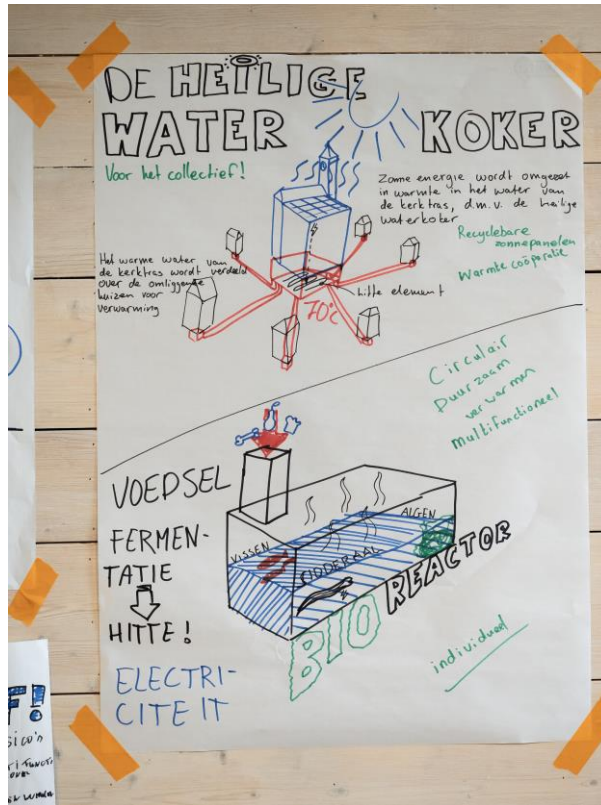 DE HEILIGE
WATER KOKER
Voor het collectief!
Zonne energie wordt omgezet
in warmte in het water van
de kerktras, d.m.v. de heilige
waterkoker
Recyclebare
zonnepanelen
Warmte coöperatie
Het warme water van
de kerktras wordt verdeeld
over de omliggende
huizen voor
verwarming
hitte element
70°C
Circulair
Duurzaam
verwarmen
multifunctioneel
VOEDSEL
FERMEN-
TATIE
HITTE!
ELECTRI-
CITEIT
VISSEN
SIDDERAAL
ALGEN
BIO REACTOR
individueel
F!